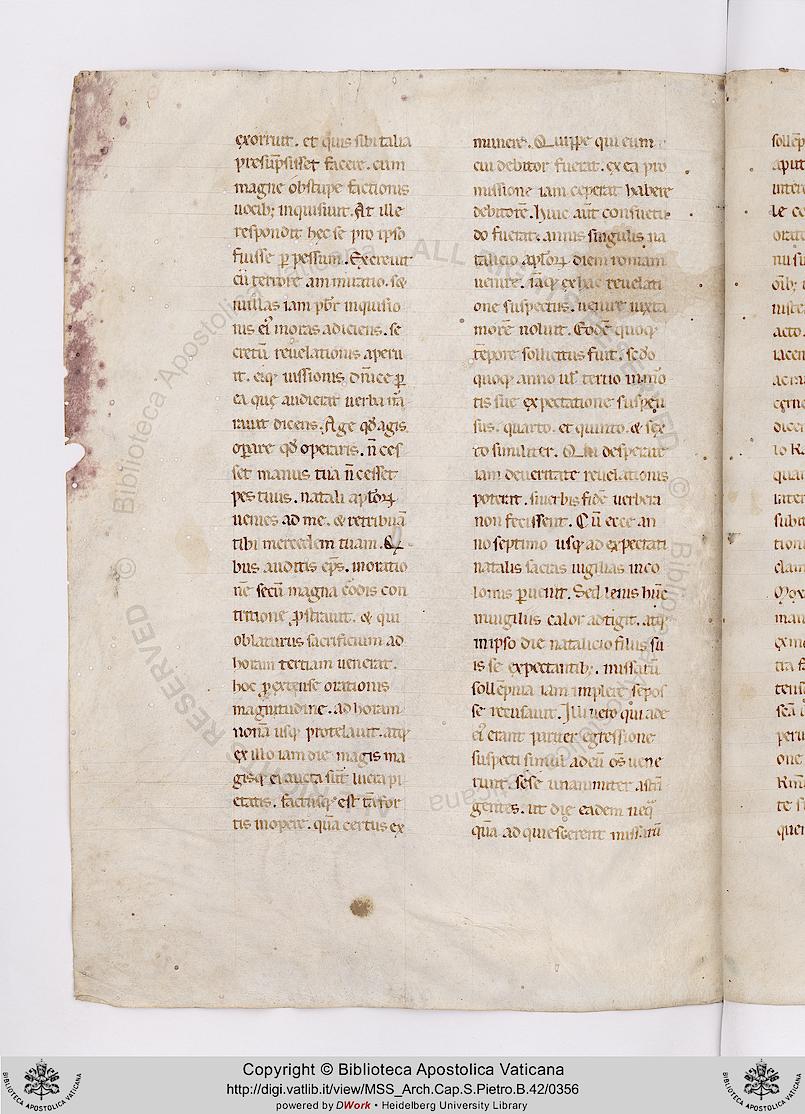 exorruit. et quis sibi talia
presūpsisset facere. cum
magne obstupefactionis
uocib; inquisiuit. At ille
respondit hec se pro ipso
fuisse ꝑpessum. Excreuit
cū terrore ammiratio. se&
nullas iam pbr inquisitio
nis ei moras adiciens. se
cretū reuelationis aperu
it. eiq; iussionis dn̄ice ꝑ
ea que audierat uerba nar
rauit dicens. Age qđ agis
operare qđ operaris. n̄ ces
set manus tua n̄ cesset
pes tuus. natali apłoꝝ
uenies ad me. & retribuā
tibi mercedem tuam. Qi
bus auditis ep̄s. in oratio
nē secū magna cordis con
tritione ꝓstrauit. & qui
oblaturus sacrificium ad
horam tertiam uenerat.
hoc ꝓ extense orationis
magnitudine. ad horam
nonā usq; protelauit. atq;
ex illo iam die magis ma
gisq; ei aucta sūt lucra pi
etatis. factusq; est tā for
tis in opere. quā certus ex
munere. Quippe qui eum
cui debitor fuerat. ex ea pro
missione iam ceperat habere
debitorē. Huic aūt consuetu
do fuerat. annis singulis na
talicio apłoꝝ diem romam
uenire. iāq; ex hac reuelati
one suspectus. uenire iuxta
morē noluit. Eodē quoq;
tēpore sollicitus fuit. sedo
quoq; anno uł tertio in mo
tis sue expectatione suspen
sus. quarto. et quinto. & sex
to similiter. Qui desperare
iam de ueritate reuelationis
poterat. si uerbis fidē uerbera
non fecissent. Cū ecce an
no septimo usq; ad expectati
natalis sacras uigilias inco
lomis ꝑuenit. Sed lenis hūc
in uigiliis calor adtigit. atq;
in ipso die natalicio filiis su
is se expectantib;. missarū
sollēpnia iam implere se pos
se recusauit. Illi uero qui de
ei erant pariter egressione
suspecti simul ad eū om̄s uene
runt. sese unanimiter astri
gentes. ut die eadem neq̄
quā adquiescerent missarū
Copyright © Biblioteca Apostolica Vaticana
http://digi.vatlib.it/view/MSS_Arch.Cap.S.Pietro.B.42/0356
powered by DWork • Heidelberg University Library